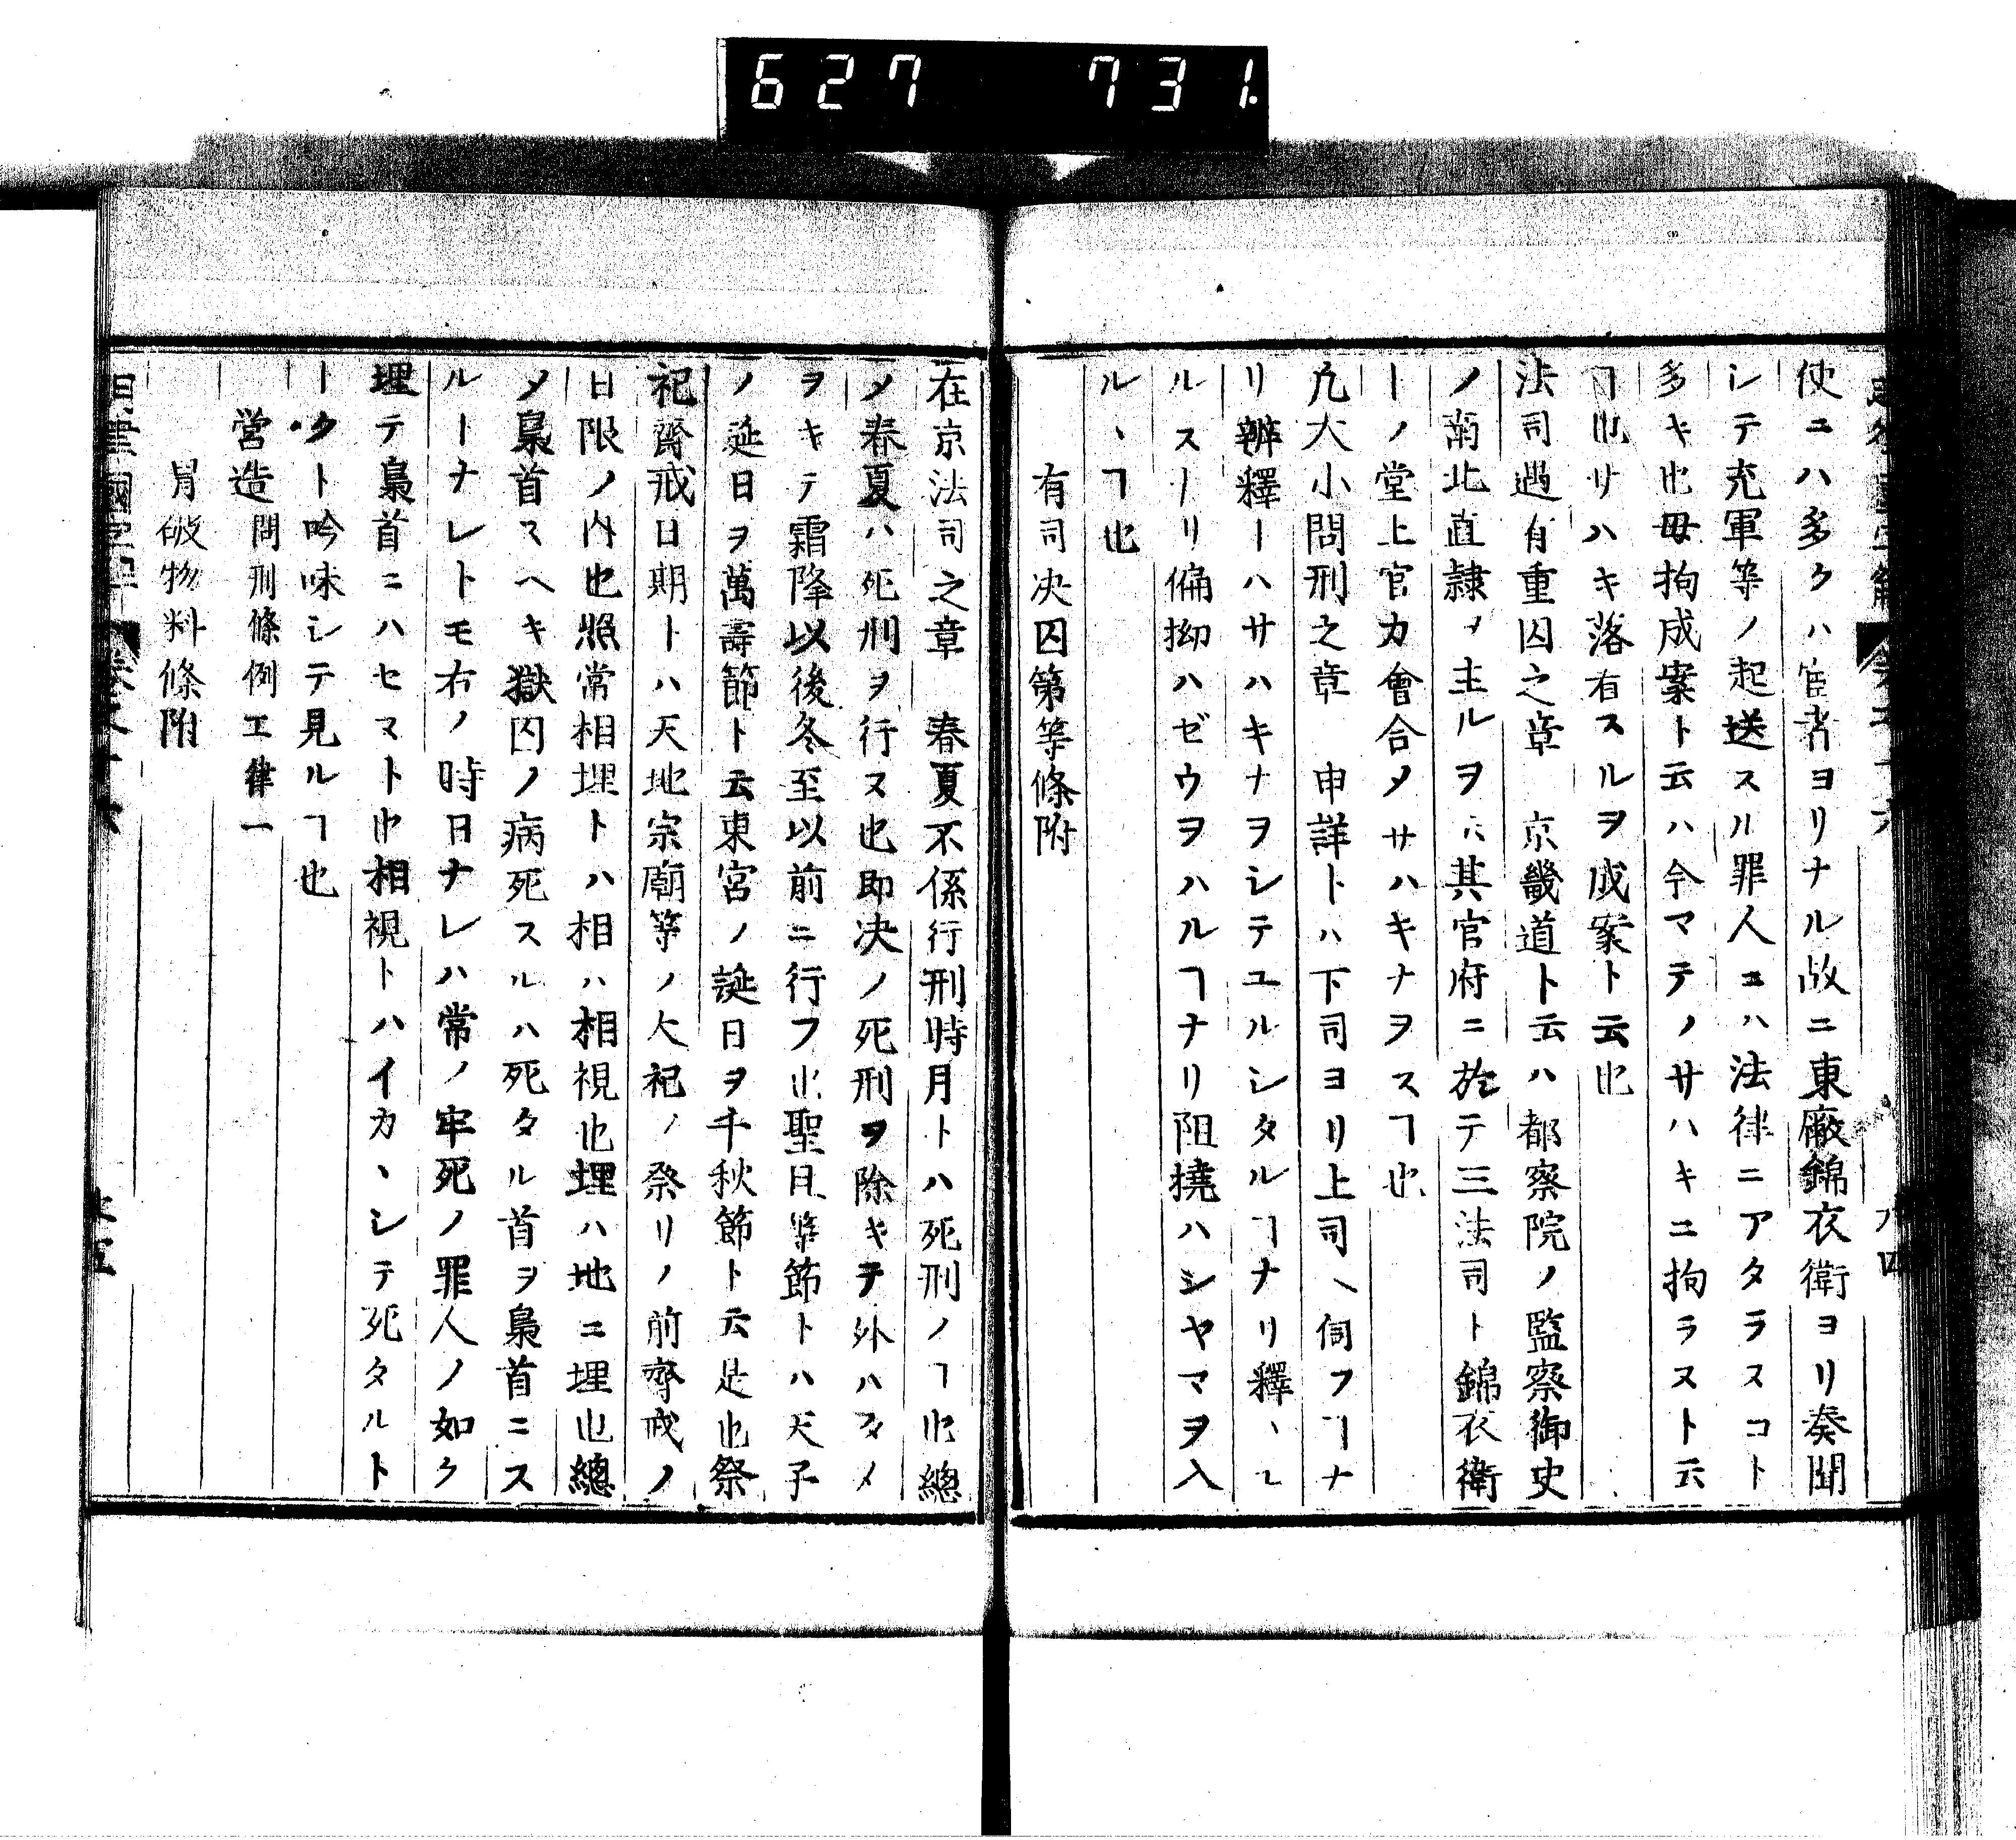 627 731.
使ニハ多クハ宦者ヨリナル故ニ東廠錦衣衛ヨリ奏聞
シテ充軍等ノ起送スル罪人ユハ法律ニアタラスコト
多キ也毋拘成案ト云ハ今マテノサハキニ拘ラヌト云
ヿ也サハキ落有スルヲ成案ト云也
法司遇有重囚之章　京畿道ト云ハ都察院ノ監察御史
ノ南北直隷ヲ主ルヲハ其官府ニ於テ三法司ト錦衣衛
ーノ堂上官力會合メサハキナヲスヿ也
凡大小問刑之章　申詳トハ下司ヨリ上司ヘ伺フヿナ
リ辨釋ーハサハキナヲシテユルシタルヿナリ釋ヽレ
ルスーリ偏拗ハゼウヲハルヿナリ阻撓ハシヤマヲ入
ルヽヿ也
有司决囚第等條附
在京法司之章　春夏不係行刑時月トハ死刑ノヿ也總
メ春夏ハ死刑ヲ行ス也即决ノ死刑ヲ除キテ外ハスメ
ヲキテ霜降以後冬至以前ニ行フ也聖旦等節トハ天子
ノ誕日ヲ萬壽節ト云東宮ノ誕日ヲ千秋節ト云是也祭
祀齋戒日期トハ天地宗廟等ノ大祀ノ祭リノ前齋戒ノ
日限ノ内也照常相埋トハ相ハ相視也埋ハ地ニ埋也總
メ梟首スヘキ獄囚ノ病死スルハ死タル首ヲ梟首ニス
ルーナレトモ右ノ時日ナレハ常ノ牢死ノ罪人ノ如ク
埋テ梟首ニハセマト也相視トハイカヽシテ死タルト
ークト吟味シテ見ルヿ也
営造 問刑條例工律一
冐破物料條附